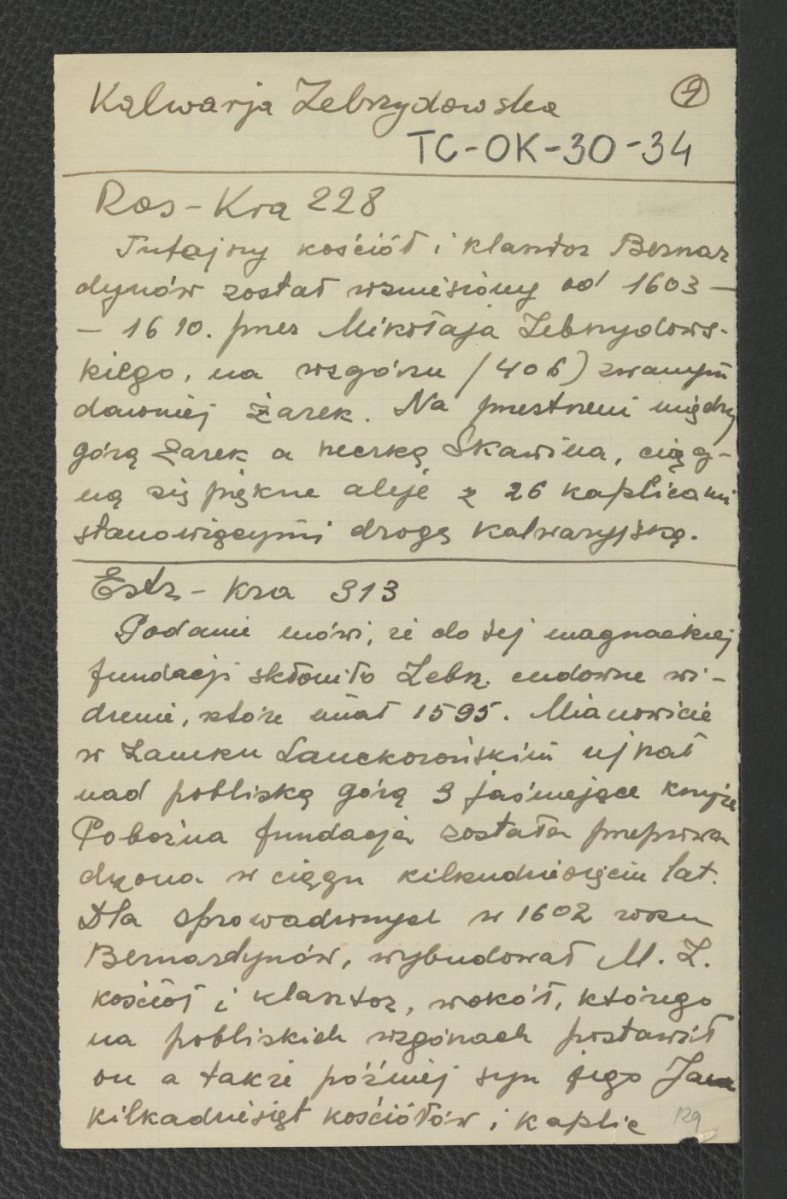 Kalwarja Zebrzydowska
1
TC-OK-30-34
Ros-Kra 228
Tutejszy kościół i klasztor Bernar
dynów został wzniesiony od 1603 -
- 1610. przez Mikołaja Zebrzydows-
kiego, na wzgórzu /406) zwanym
dawniej Żarek. Na przestrzeni między
górą Żarek a rzeczką Skawina, ciąg-
ną się piękne aleje z 26 kaplicami
stanowiącymi drogę kalwaryjską.
Estr - Kra 313
Podanie mówi, że do tej magnackiej
fundacji skłoniło Zebrz. cudowne wi-
dzenie, które miał 1595. Mianowicie
w Zamku Lanckorońskim ujrzał
nad pobliską górą 3 jaśniejące krzyże
Pobożna fundacja została przeprowa
dzona w ciągu kilkudziesięciu lat.
Dla sprowadzonych w 1602 roku
Bernardynów, wybudował M. Z.
kościół i klasztor, wokół, którego
na pobliskich wzgórzach postawił
on a także później syn jego Jan
kilkadziesiąt kościołów i kaplic
129